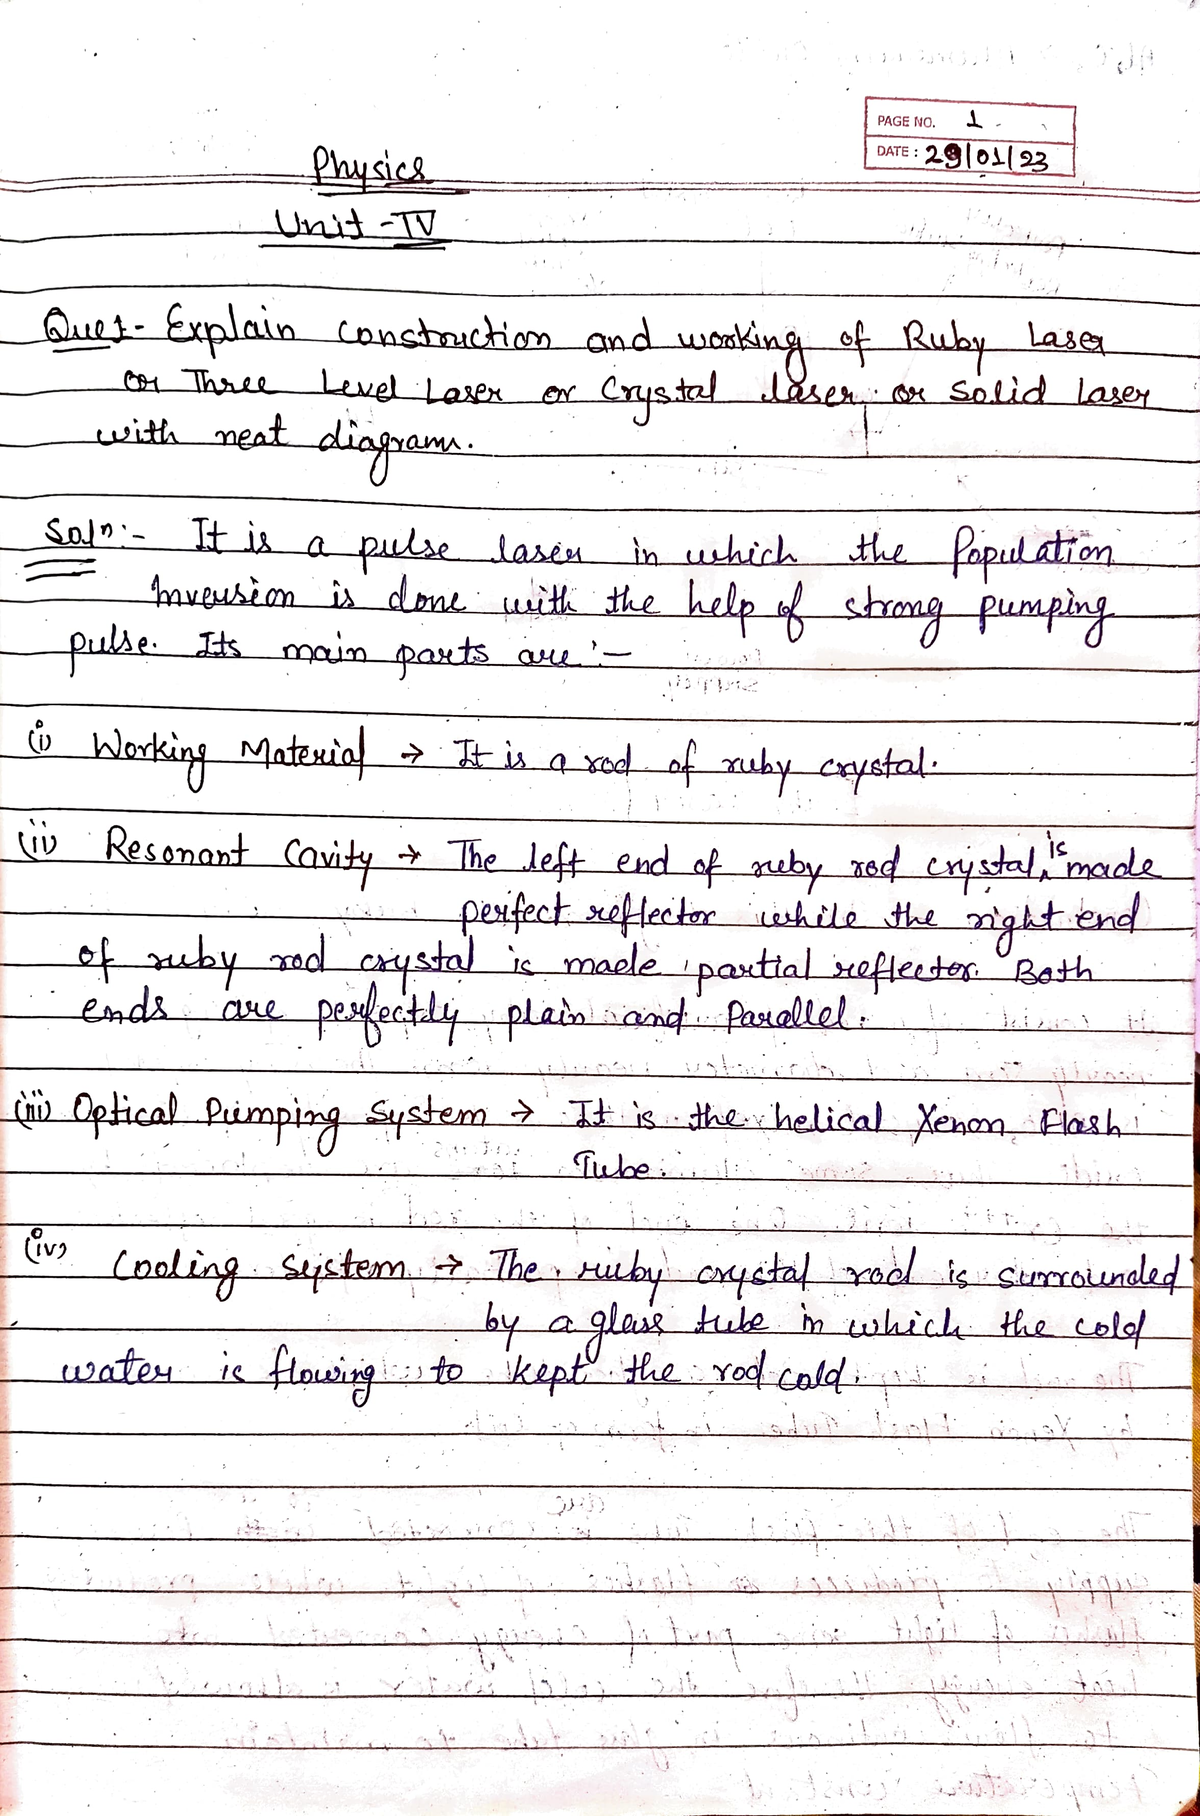 PAGE NO. 1
DATE: 29/01/23
Physics
Unit-IV
Ques- Explain construction and working of Ruby Laser
or Three Level Laser or Crystal laser or Solid Laser
with neat diagram.
Soln:- It is a pulse laser in which the Population
Inversion is done with the help of strong pumping
pulse. Its main parts are:-
(i) Working Material → It is a rod of ruby crystal.
(ii) Resonant Cavity → The left end of ruby rod crystal is made
perfect reflector while the right end
of ruby rod crystal is made partial reflector. Both
ends are perfectly plain and Parallel.
(iii) Optical Pumping System → It is the helical Xenon Flash
Tube.
(iv) Cooling System → The ruby crystal rod is surrounded
by a glass tube in which the cold
water is flowing to kept the rod cold.